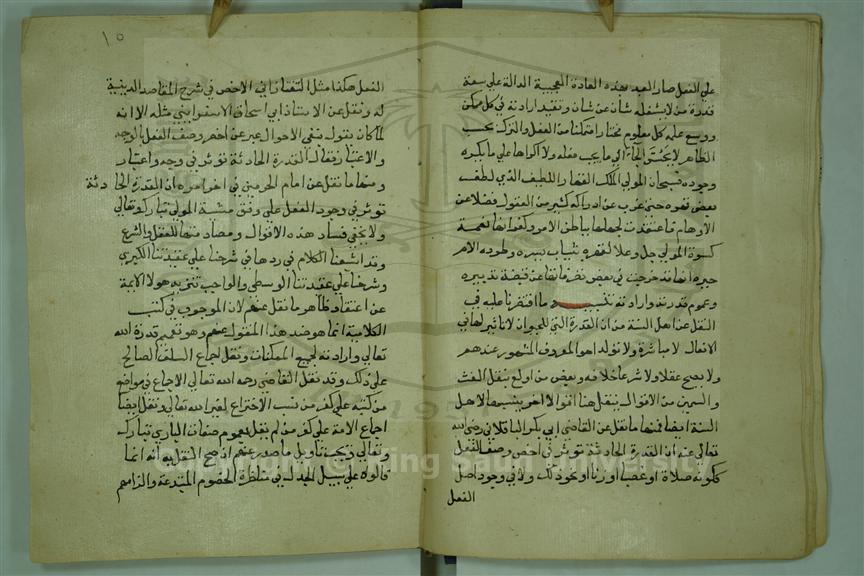 على الفعل صار العبد بهذه العادة العجيبة الدالة على سعة
قدرة من لا يشغله شأن عن شأن وتنفيذ ارادته في كل ممكن
ووسع علمه كل معلوم مختارا متمكنا من الفعل والترك بحسب
الظاهر لا يحس الجاء الى ما يحب فعله ولا اكراها على ما يكره
وجوده فسبحان المولى الملك القهار اللطيف الذي لطف
بعض قهره حتى عزب عن ادراكه كثير من العقول فضلا عن
الاوهام فاعتقدت لجهلها بباطن الامر وكفرانها نعمة
كسوة المولى جل وعلا لقهره بثياب يسره
جبره انها قد خرجت في بعض تصرفاتها عن قبضة تدبيره
وعموم قدرته وارادته تنبيه ما اقتصرنا عليه في
النقل عن اهل السنة من ان القدرة التي للحيوان لا تاثير لها في
الافعال لا مباشرة ولا تولدا هو المعروف المشهور عندهم
ولا يصح عقلا ولا شرعا خلافه وبعض من اولع بنقل الغث
والسمين من الاقوال ينقل هنا اقوالا اخر ينسبها لاهل
السنة ايضا فمنها ما نقل عن القاضي ابي بكر الباقلاني رضي الله
تعالى عنه ان القدرة الحادثة توثر في اخص وصف الفعل
ككونه صلاة او غصبا او زنا او نحو ذلك ولا في وجود اصل
الفعل
١٥
الفعل هكذا مثل التفتازاني الاخص في شرح المقاصد الدينية
له ونقل عن الاستاذ ابي اسحاق الاسفرايني مثله الا انه
لما كان يقول بنفي الاحوال عبر عن اخص وصف الفعل بالوجه
والاعتبار فقال القدرة الحادثة توثر في وجه واعتبار
ومنها ما نقل عن امام الحرمين في اخر امره ان القدرة الحادثة
توثر في وجود الفعل على وفق مشية المولى تبارك وتعالى
ولا يخفى فساد هذه الاقوال ومصادمتها للعقل والشرع
وقد اشبعنا الكلام في ردها في شرحنا على عقيدتنا الكبرى
وشرحنا على عقيدتنا الوسطى والواجب تنزيه هولا الايمة
عن اعتقاد ظاهر ما نقل عنهم لان الموجود في كتبهم
الكلامية انما هو ضد هذا المنقول عنهم وهو تعميم قدرة الله
تعالى وارادته لجميع الممكنات ونقل اجماع السلف الصالح
على ذلك وقد نقل القاضي رحمه الله تعالى الاجماع في مواضع
من كتبه على كفر من نسب الاختراع لغير الله تعالى ونقل ايضا
اجماع الامة على كفر من لم يقل بعموم صفات الباري تبارك
وتعالى فيجب تاويل ما صدر عنهم ان صح النقل بانه انما
قالوه على سبيل الجدل في مناظرة الخصوم المبتدعة والزامهم
Copyright © King Saud University
1957